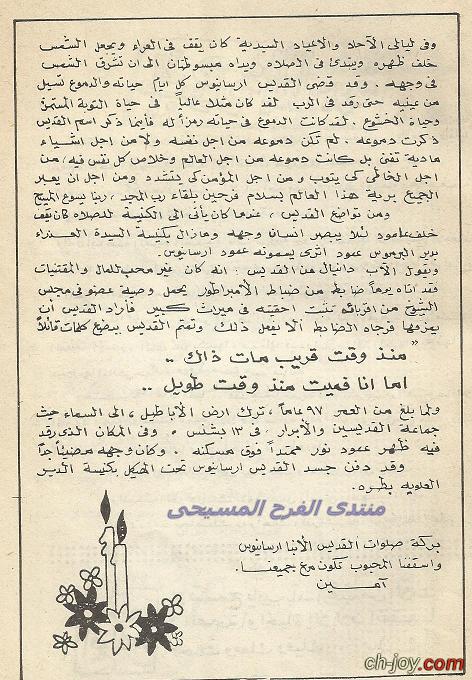 وفى ليالى الآحاد والاعياد السيدية كان يقف فى العراء ويجعل الشمس
خلف ظهره ويبتدئ فى الصلاه ويداه مبسوطتان الى ان تشرق الشمس
فى وجهه . وقد قضى القديس ارسانيوس كل ايام حياته والدموع تسيل
من عينيه حتى رقد فى الرب لقد كان مثلا عالياً فى حياة التوبة
وحياة الخشوع . لقد كانت الدموع فى حياته رمزاً له فاينما ذكر اسم القديس
ذكرت دموعه . لم تكن دموعه من اجل نفسه ولا من اجل اشياء
مادية تفنى بل كانت دموعه من اجل العالم وخلاص كل نفس فيه، من
اجل الخاطى كى يتوب ومن اجل المؤمن كى يتشدد ومن اجل ان يعبر
الجميع برية هذا العالم بسلام فرحين بلقاء رب المجد ، ربنا يسوع المسيح
ومن تواضع القديس ، عندما كان يأتى الى الكنيسة للصلاه كان يقف
خلف عامود لئلا يبصر انسان وجهه ومازال بكنيسة السيدة العذراء
بدير البرموس عمود اثرى يسمونه عمود ارسانيوس .
ويقول الأب دانيال عن القديس : انه كان غير محب للمال والمقتنيات
فقد اتاه يوماً ضابط من ضباط الأمبراطور يحمل وصية عضو فى مجلس
الشيوخ من اقربائه تثبت احقيته فى ميراث كبير فأراد القديس أن
يمزقها فرجاه الضابط ألا يفعل ذلك وتمتم القديس ببضع كلمات قائلاً
" منذ وقت قريب مات ذاك ..
اما انا فميت منذ وقت طويل ..
ولما بلغ من العمر ٩٧ عاماً ، ترك ارض الأباطيل ، الى السماء حيث
جماعة القديسين والأبرار . فى ١٣ بشنس . وفى المكان الذى رقد
فيه ظهر عمود نور ممتداً فوق مسكنه . وكان وجهه مضيئاً جداً
وقد دفن جسد القديس ارسانيوس تحت الهيكل بكنيسة الدير
العلويه بطره .
منتدى الفرح المسيحى
بركة صلوات القديس الأنبا ارسانيوس
واسقفنا المحبوب تكون مع جميعنا .
آمــين
ch-joy.com